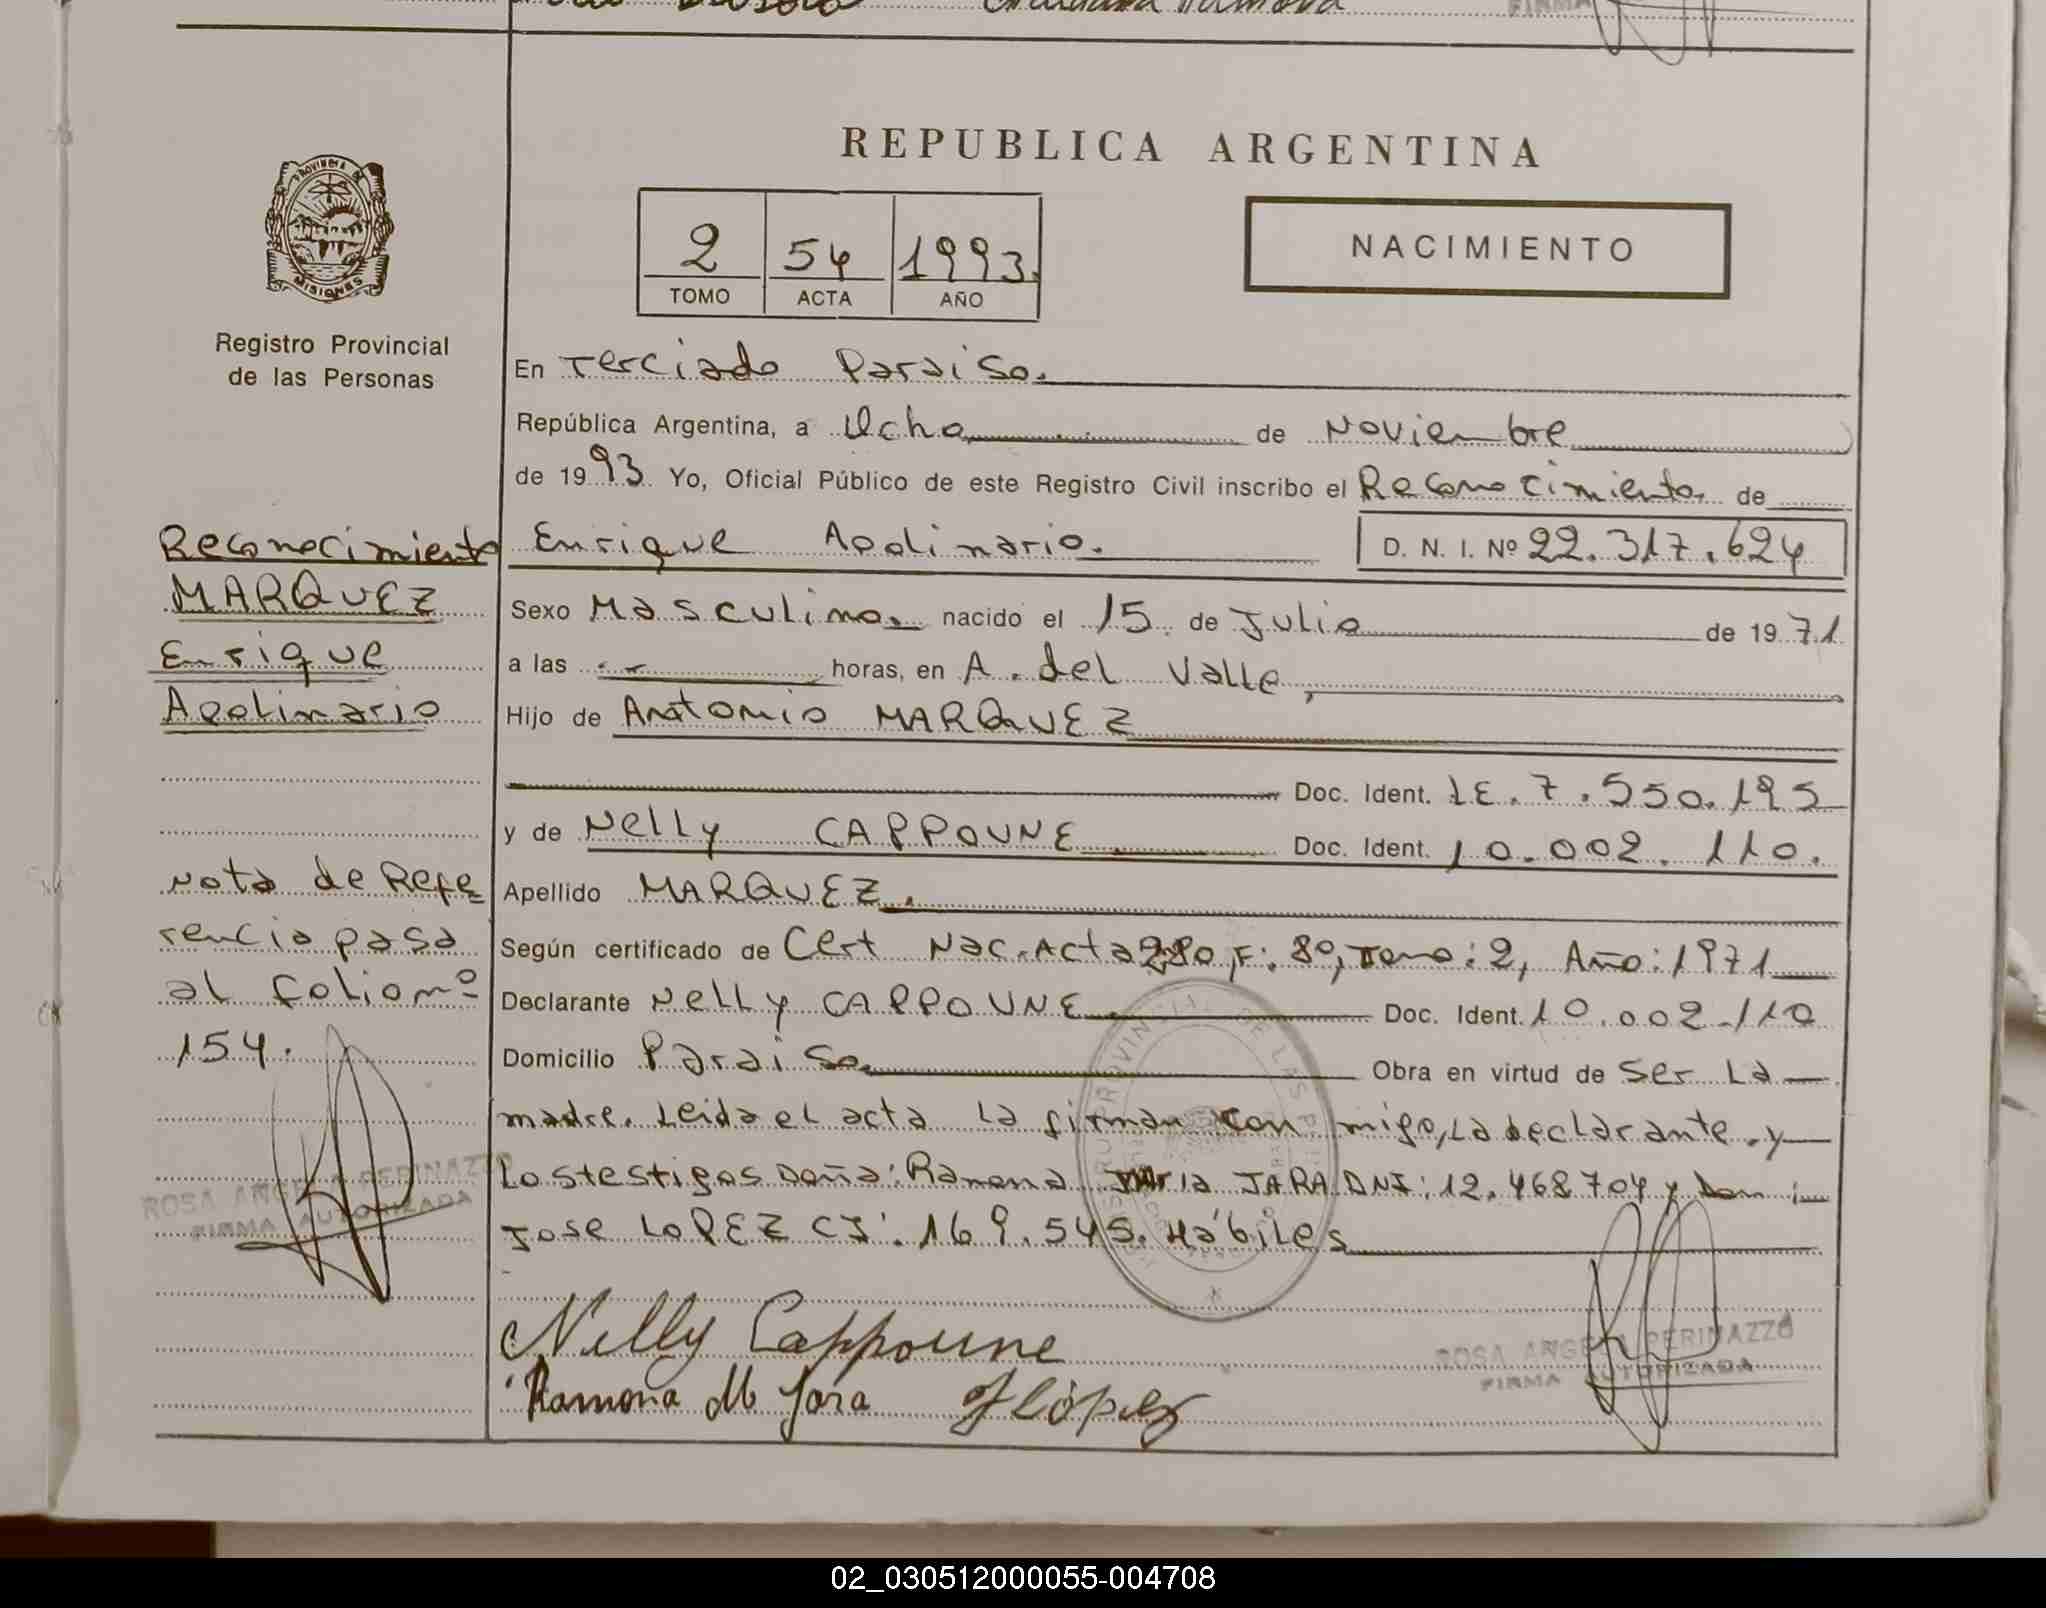 REPUBLICA ARGENTINA
PROVINCIA DE
MISIONES
Registro Provincial
de las Personas
2 54 1993.
TOMO ACTA AÑO
NACIMIENTO
En Terciado Paraiso.
República Argentina, a Ocho de Noviembre
de 1993. Yo, Oficial Público de este Registro Civil inscribo el Reconocimiento de
Enrique Apolinario. D. N. I. Nº 22.317.624
Sexo Masculino. nacido el 15 de Julio de 1971
a las -- horas, en A. del Valle,
Hijo de Antonio MARQUEZ
Doc. Ident. LE. 7.550.195
y de Nelly CAPPOUNE Doc. Ident. 10.002.110.
Apellido MARQUEZ.
Según certificado de Cert Nac. Acta 280, F: 80, Tomo: 2, Año: 1971
Declarante Nelly CAPPOUNE Doc. Ident. 10.002.110
Domicilio Paraiso. Obra en virtud de Ser La
madre. Leida el acta la firman con migo, La declarante. y
Los testigos Doña: Ramona Maria JARA DNI: 12.468704 y Don :
Jose LOPEZ CI: 169.545. Hábiles
Nelly Cappoune
Ramona M Jara J López
ROSA ANGELA PERINAZZO
FIRMA AUTORIZADA
Reconocimiento
MARQUEZ
Enrique
Apolinario
Nota de Refe
rencia pasa
al folio nº
154.
ROSA ANGELA PERINAZZO
FIRMA AUTORIZADA
02_030512000055-004708